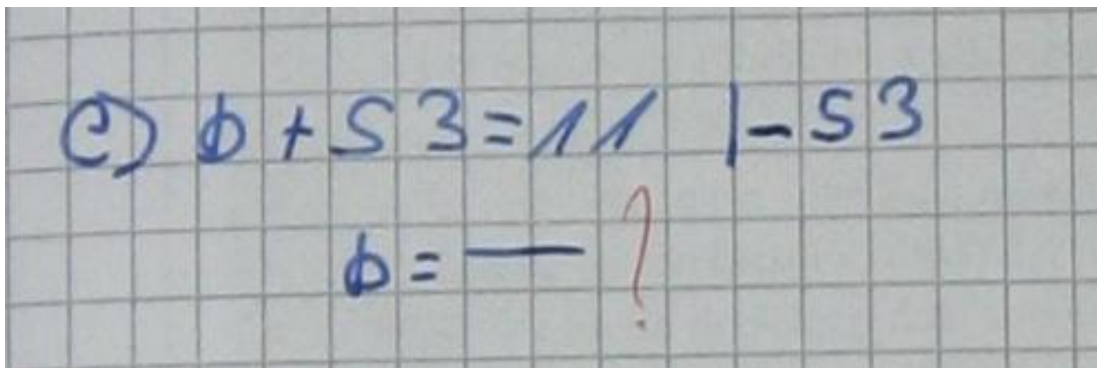 c) b + 53 = 11 |- 53
b = — ?